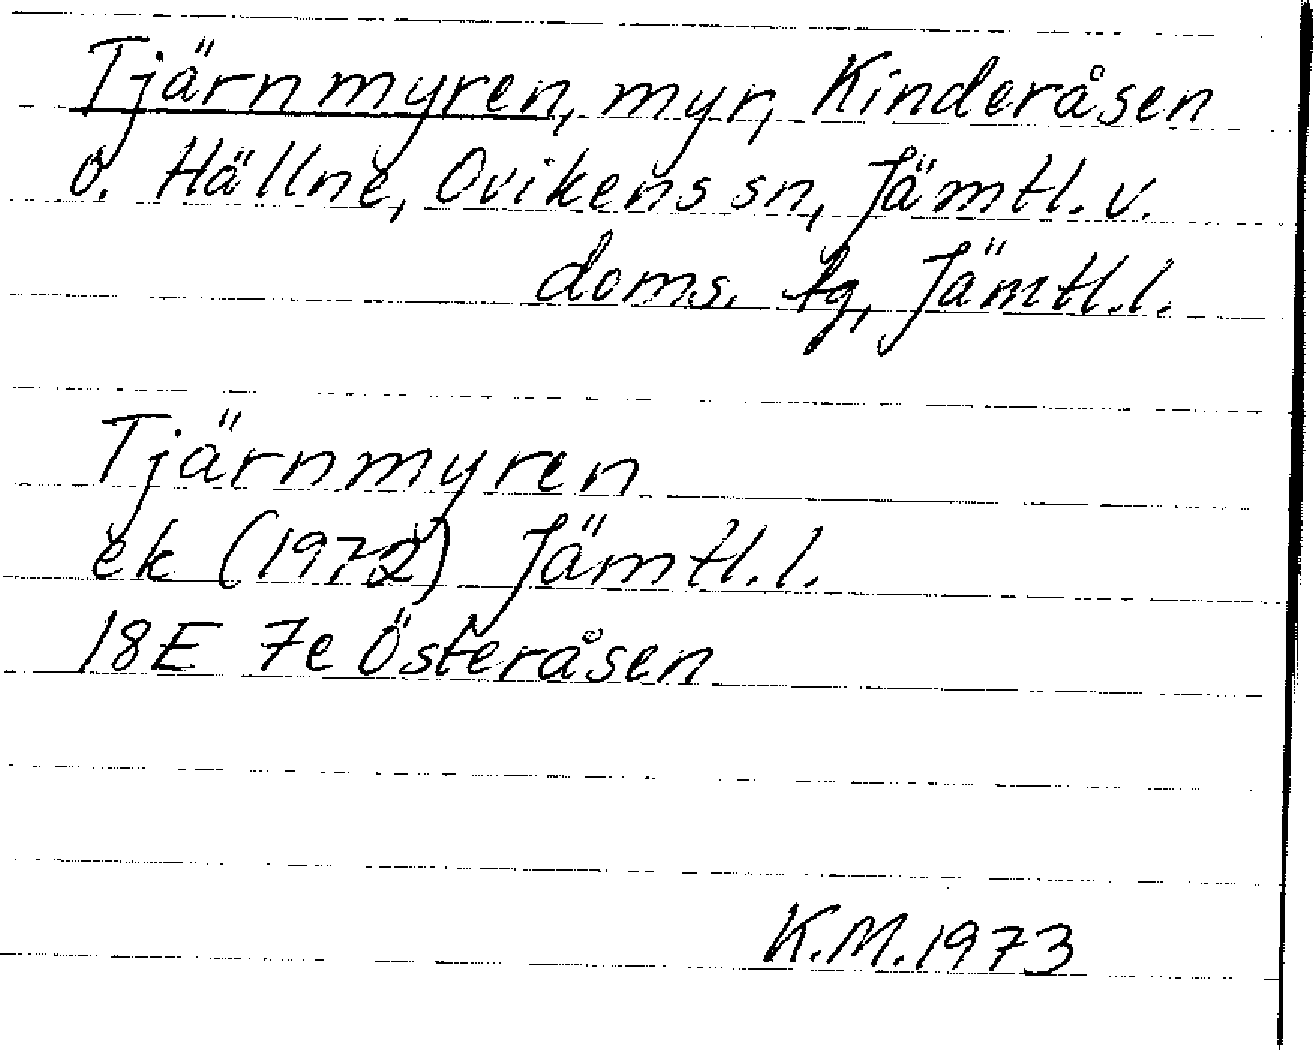 Tjärnmyren, myr, Kinderåsen
o. Hällne, Ovikens sn, Jämtl. v.
doms. tg, Jämtl. l.
Tjärnmyren
ek (1972) Jämtl. l.
18E 7e Österåsen
K.M. 1973